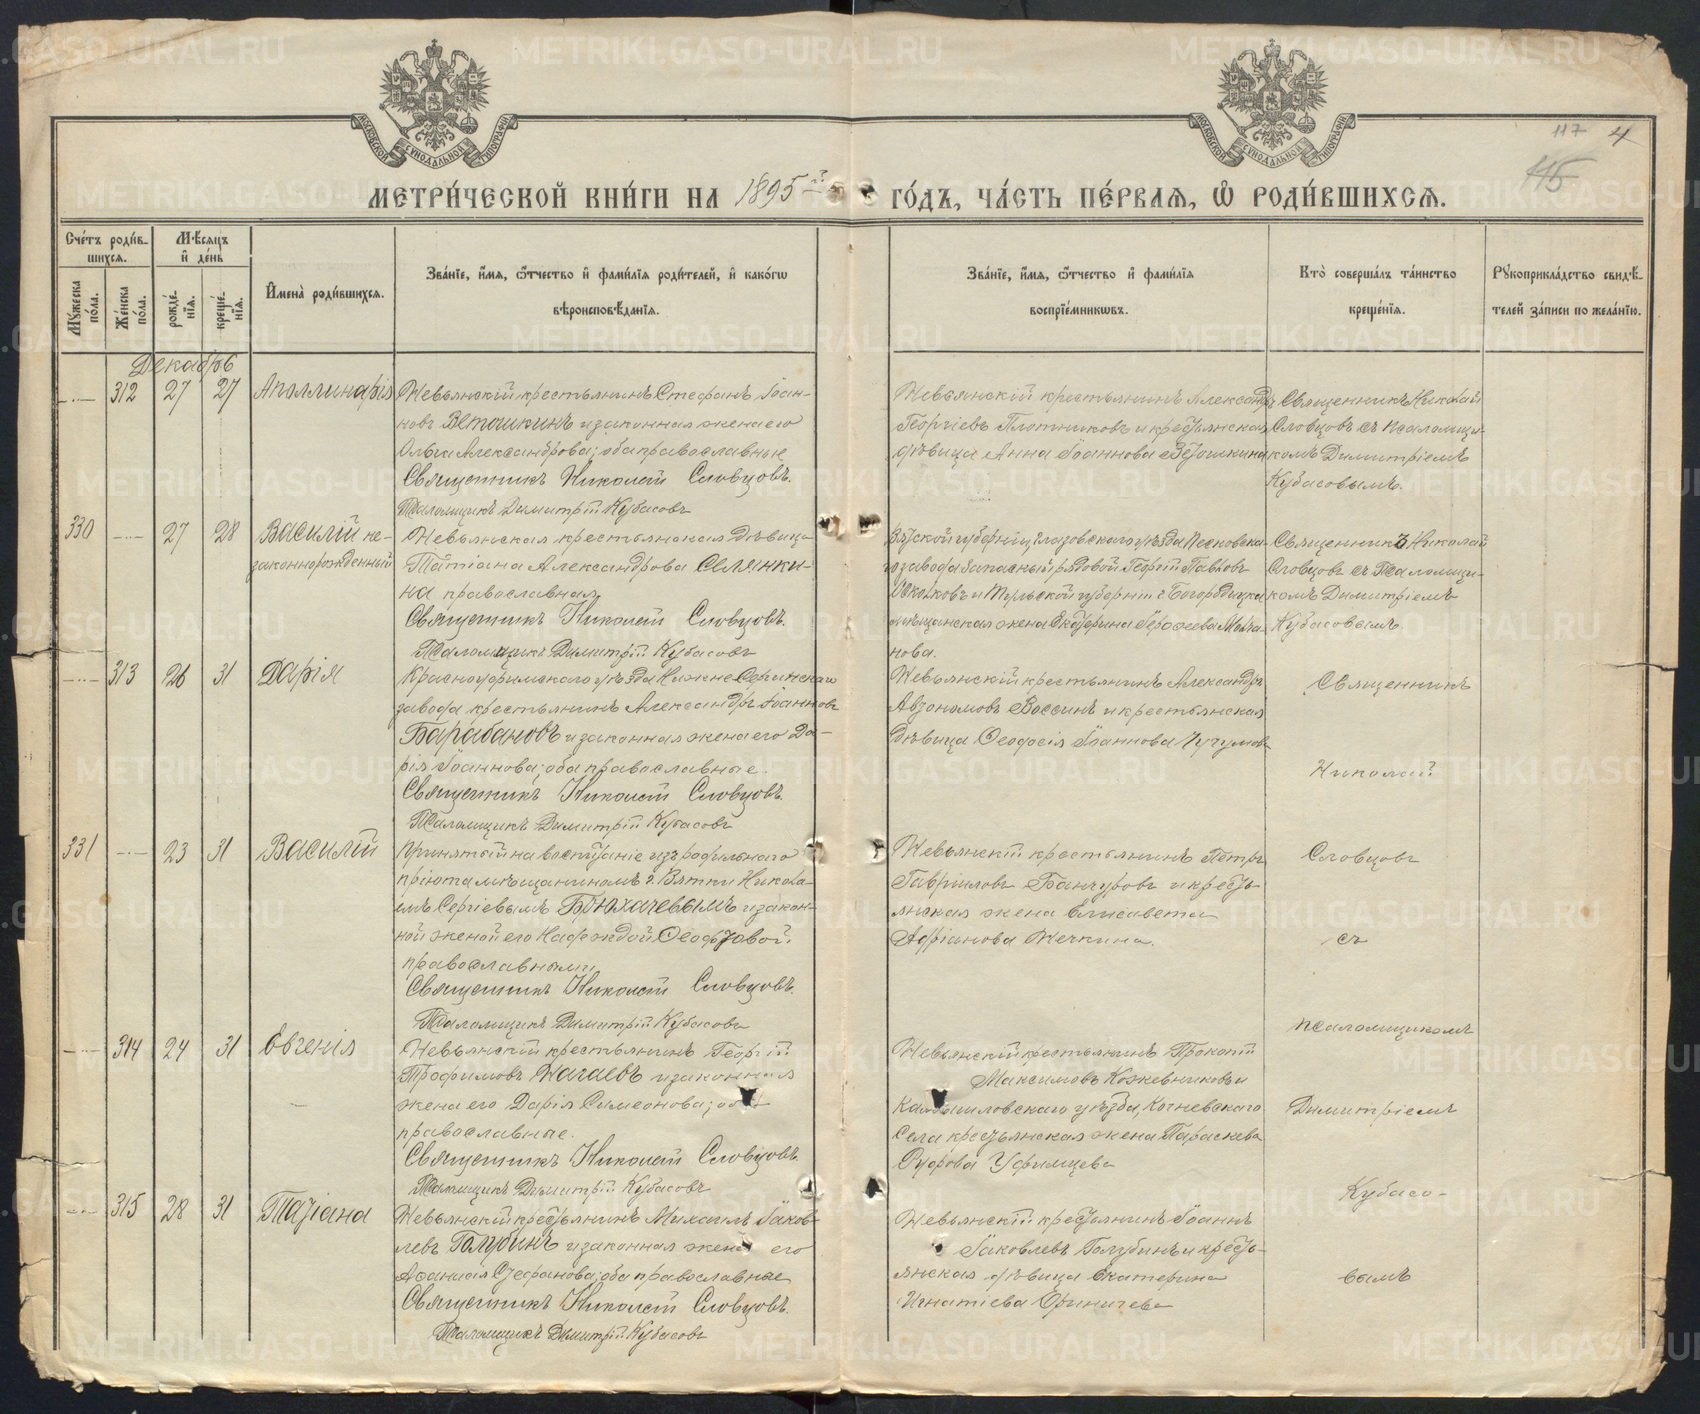 117 4
115
МОСКОВСКОЙ СУНОДАЛЬНОЙ ТИПОГРАФІИ
МОСКОВСКОЙ СУНОДАЛЬНОЙ ТИПОГРАФІИ
МЕТРИ́ЧЕСКОЙ КНИ́ГИ НА 1895й ГО́ДЪ, ЧА́СТЬ ПЕ́РВАЯ, Ѡ҆ РОДИ́ВШИХСЯ.
Сче́тъ роди́в-
шихся.
Мѣ́сяцъ
и҆ де́нь
Му́жеска по́ла.
Же́нска по́ла.
рожде́нїя.
креще́нїя.
И҆мена̀ роди́вшихся.
Зва́нїе, и҆́мя, ѻ҆́тчество и҆ фами́лїя роди́телей, и҆ како́гѡ
вѣроисповѣ́данїя.
Зва́нїе, и҆́мя, ѻ҆́тчество и҆ фами́лїя
воспрїе́мникѡвъ.
Кто̀ соверша́лъ та́инство
креще́нїя.
Рꙋкоприкла́дство свидѣ́-
телей за́писи по жела́нїю.
Декабрь
312 27 27 Аполлинарія
Невьянскій крестьянинъ Стефанъ Іоан-
новъ Ветошкинъ и законная жена его
Ольга Александрова; оба православные
Священникъ Николай Словцовъ.
Псаломщикъ Димитрій Кубасовъ
Невьянскій крестьянинъ Александръ
Георгіевъ Плотниковъ и крестьянская
дѣвица Анна Іоаннова Ветошкина
Священникъ Николай
Словцовъ съ псаломщи-
комъ Димитріемъ
Кубасовымъ.
330 27 28 Василій не-
законнорожденный
Невьянская крестьянская дѣвица
Татіана Александрова Селянки-
на православная
Священникъ Николай Словцовъ.
Псаломщикъ Димитрій Кубасовъ
Вятской губерніи, Глазовскаго уѣзда Песковска-
го завода запасный рядовой Георгій Павловъ
и Тульской губерніи г. Богородицка
мѣщанская жена Екатерина
нова.
Священникъ Николай
Словцовъ съ Псаломщи-
комъ Димитріемъ
Кубасовымъ.
313 26 31 Дарія
Красноуфимскаго уѣзда Нижне-Сергинскаго
завода крестьянинъ Александръ Іоанновъ
Барабановъ и законная жена его Да-
рія Іоаннова; оба православные.
Священникъ Николай Словцовъ.
Псаломщикъ Димитрій Кубасовъ
Невьянскій крестьянинъ Александръ
Авзономовъ Вассинъ и крестьянская
дѣвица Ѳеодосія Іоаннова
Священникъ
Николай
331 23 31 Василій
Принятый на воспитаніе изъ родильнаго
пріюта мѣщаниномъ г. Вятки Никола-
емъ Сергіевымъ Брюхачевымъ и закон-
ной женой его Надеждой Ѳеодоровой,
православными
Священникъ Николай Словцовъ.
Псаломщикъ Димитрій Кубасовъ
Невьянскій крестьянинъ Петръ
Гавріиловъ и кресть-
янская жена Елисавета
Адріанова
Словцовъ
съ
псаломщикомъ
314 24 31 Евгенія
Невьянскій крестьянинъ Георгій
Трофимовъ Нагаевъ и законная
жена его Дарія Симеонова; оба
православные.
Священникъ Николай Словцовъ.
Псаломщикъ Димитрій Кубасовъ
Невьянскій крестьянинъ Прокопій
Максимовъ Кожевниковъ и
Камышловскаго уѣзда, Кочневскаго
села крестьянская жена Параскева
Уфимцева
Димитріемъ
Кубасо-
315 28 31 Татіана
Невьянскій крестьянинъ Михаилъ Іаков-
левъ Голубинъ и законная жена его
Аѳанасія Стефанова; оба православные
Священникъ Николай Словцовъ.
Псаломщикъ Димитрій Кубасовъ
Невьянскій крестьянинъ Іоаннъ
Іаковлевъ Голубинъ и кресть-
янская дѣвица Екатерина
Игнатіева
вымъ
METRIKI.GASO-URAL.RU